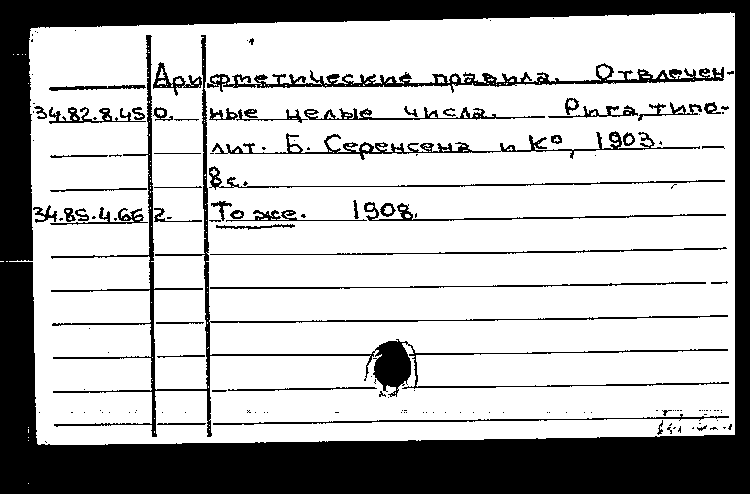 Арифметические правила. Отвлечен-
34.82.8.450. ные целые числа. Рига, типо-
лит. Б. Серенсена и К°, 1903.
8с.
34.85.4.662. То же. 1908.